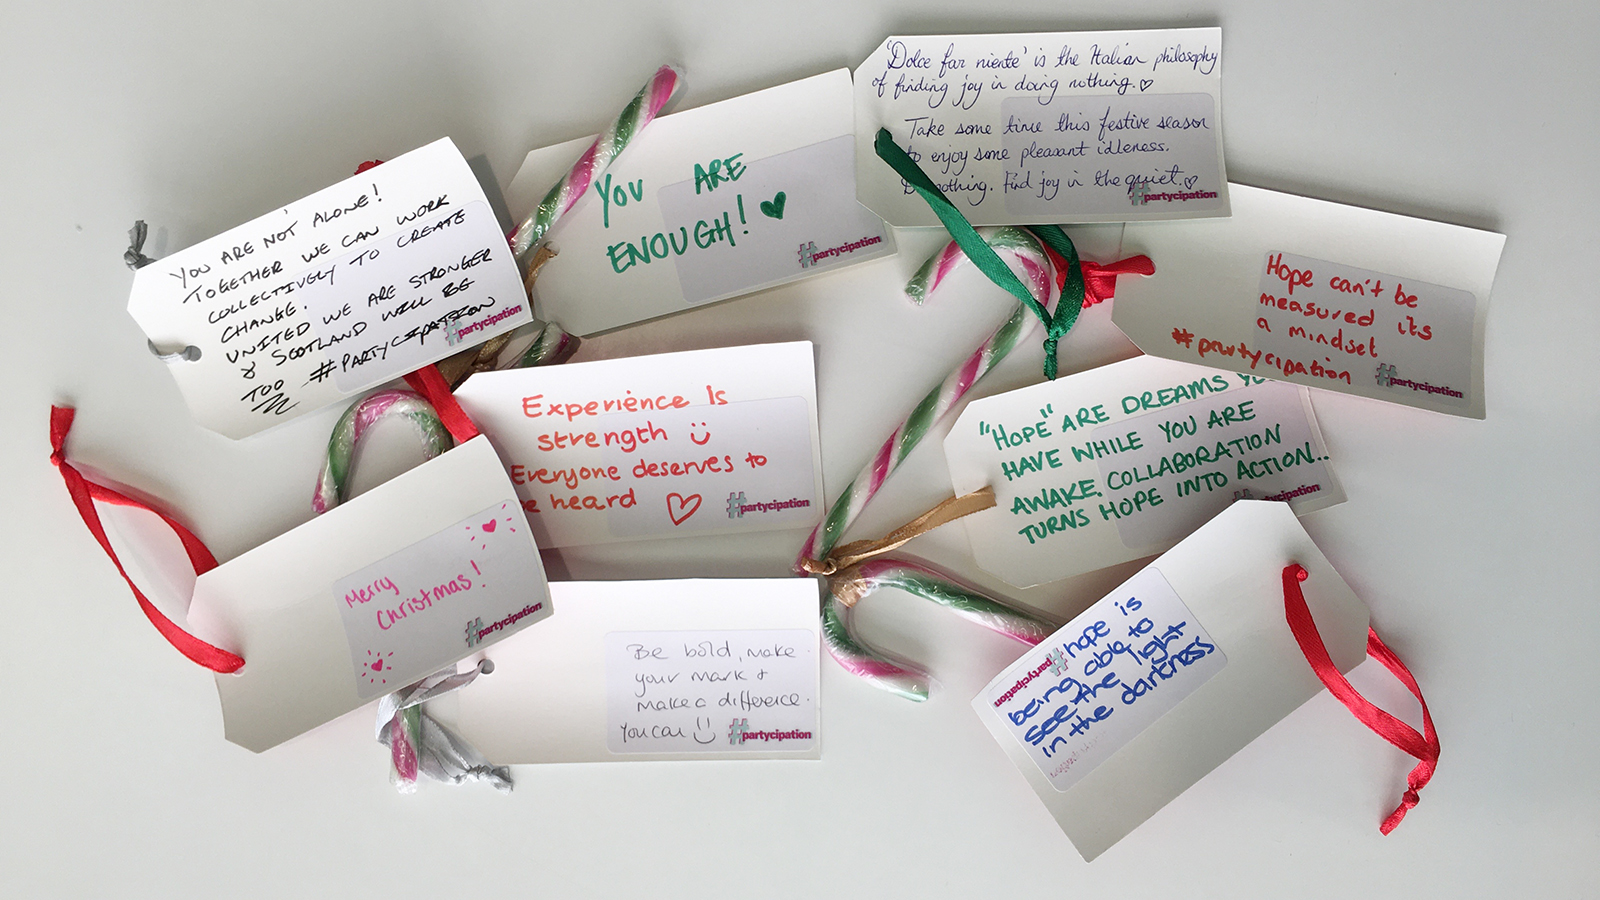 YOU ARE NOT ALONE!
TOGETHER WE CAN WORK
COLLECTIVELY TO CREATE
CHANGE.
UNITED WE ARE STRONGER
& SCOTLAND WILL BE
TOO #PARTYCIPATION
#partycipation
YOU ARE
ENOUGH!
#partycipation
'Dolce far niente' is the Italian philosophy
of finding joy in doing nothing.
Take some time this festive season
to enjoy some pleasant idleness.
nothing. Find joy in the quiet.
#partycipation
Hope can't be
measured its
a mindset
#partycipation
#partycipation
Experience Is
strength
Everyone deserves to
be heard
#partycipation
"HOPE" ARE DREAMS YOU
HAVE WHILE YOU ARE
AWAKE. COLLABORATION
TURNS HOPE INTO ACTION...
#partycipation
Merry
Christmas!
#partycipation
Be bold, make
your mark &
make a difference.
You can
#partycipation
#hope is
being able to
see the light
in the darkness
#partycipation